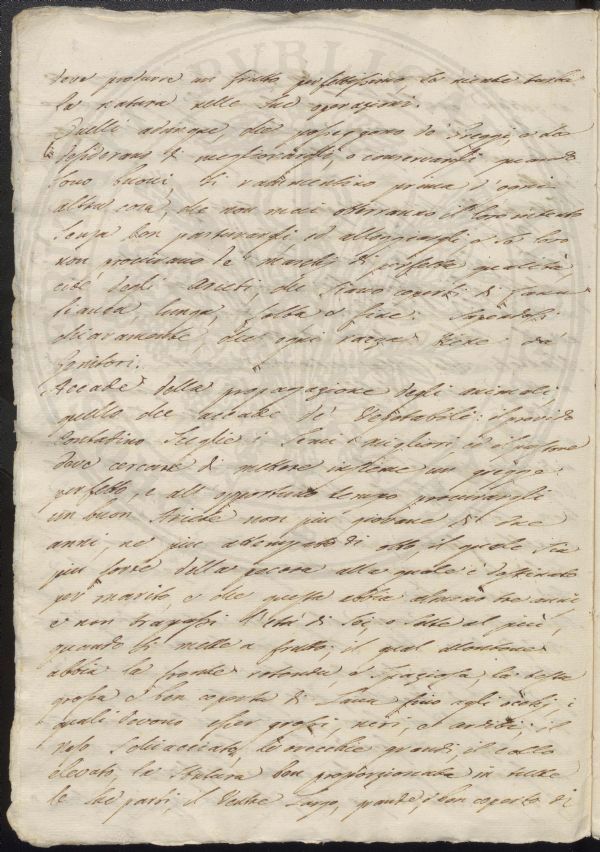 deve produrre un frutto perfettissimo, la niente turba
la natura nelle sue operazioni.
Quelli adunque che posseggono de' Greggi, o che
desiderano di megliorarli, o conservarli quando
sono buoni, si rammentino prima d'ogni
altra cosa, che non mai otterranno il loro intento
senza ben pasturargli, ed alloggiargli, e se loro
non procurano de' maschi di perfetta qualità
cioè degli Arieti, che siano coperti di lana
bianca, lunga, folta e fine. Sapendosi
chiaramente, che ogni razza viene da'
Genitori.
Accade della propagazione degli animali,
quello che accade de' Vegetabili: il provido
Contadino sceglie i semi i migliori, ed il Pastore
deve cercare di mettere insieme un gregge
perfetto, e all'opportuno tempo procurargli
un buon Ariete non più giovane di tre
anni, nè più attempato di otto, il quale sia
più forte della pecora alla quale è destinato
per marito, e che questa abbia almeno tre anni
e non trapassi l'età di sei, o sette al più,
quando si mette a frutto: il qual Montone
abbia la fronte rotonda, e spaziosa, la testa
grossa e ben coperta di lana fino agli occhi, i
quali devono esser grossi, neri, e arditi; il
naso schiacciato, le orecchie grandi, il collo
elevato, la statura ben proporzionata in tutte
le sue parti, il Ventre largo, grande, e ben coperto di
PVBLICO